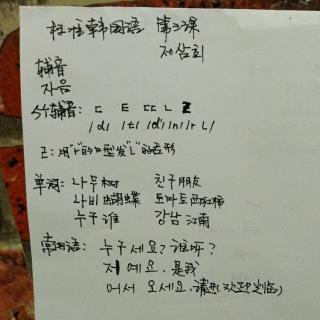 标准韩国语 第三课
제삼회
辅音
자음
5个辅音: ㄷ ㅌ ㄸ ㄴ ㄹ
/d/ /t/ /d'/ /n/ /r l/
ㄹ: 用"r"的口型发"L"的音形
单词: 나무 树 친구 朋友
나비 蝴蝶 토마토 西红柿
누구 谁 강남 江南
常用语: 누구세요? 谁呀?
저예요. 是我
어서 오세요. 请进(欢迎光临)